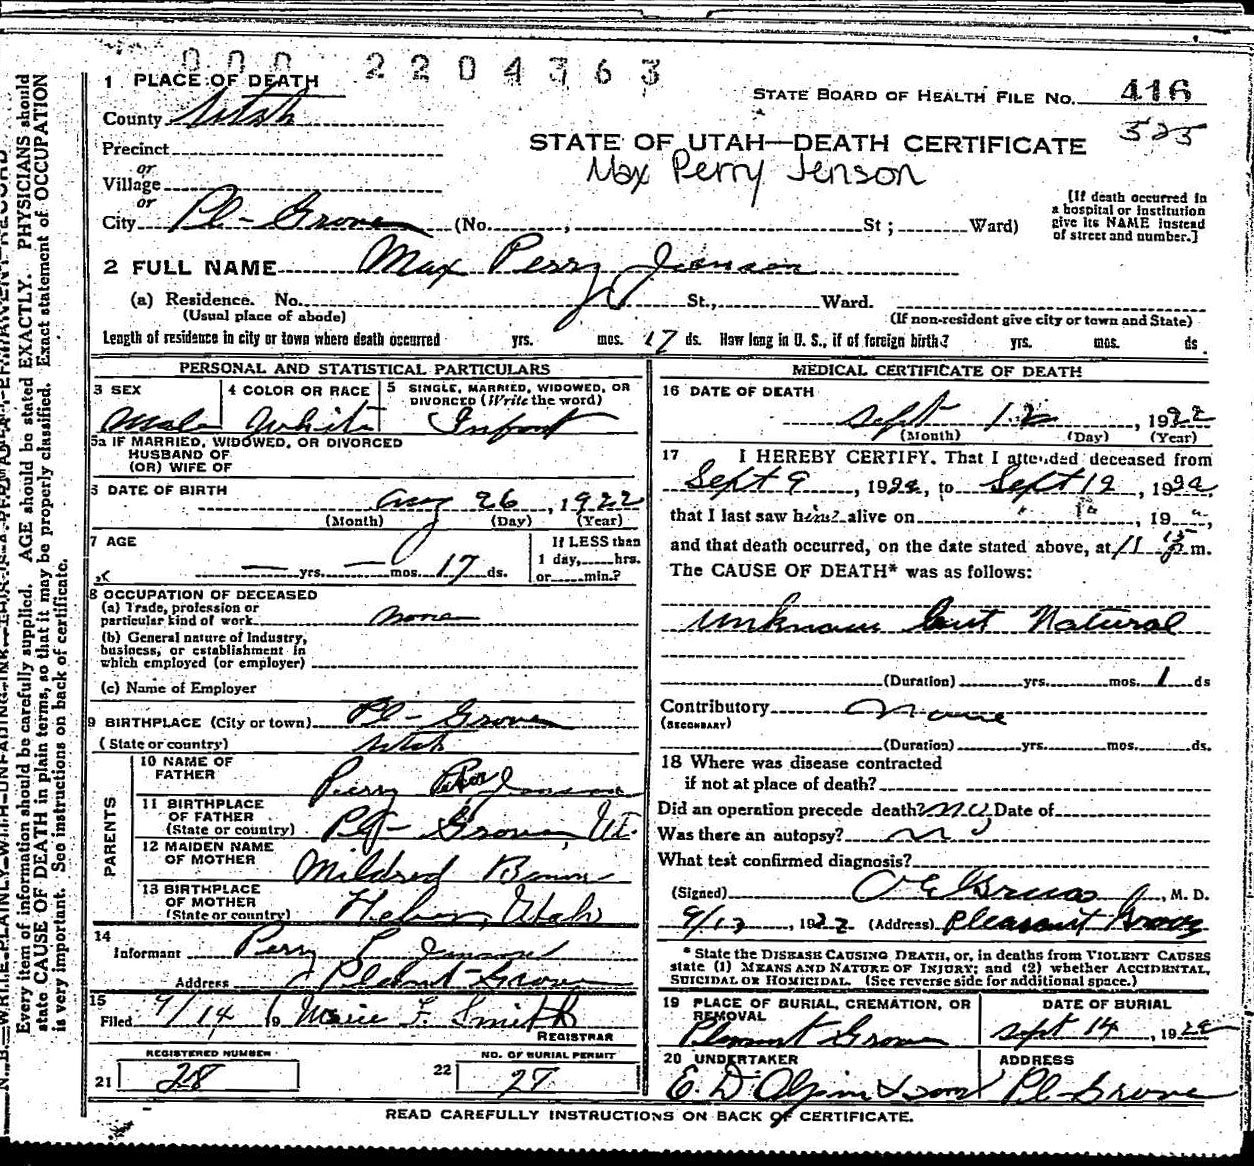 000 2204363
1 PLACE OF DEATH
STATE BOARD OF HEALTH FILE NO. 416
County Utah
525
Precinct
STATE OF UTAH—DEATH CERTIFICATE
or
Max Perry Jenson
Village
or
[If death occurred in a hospital or institution give its NAME instead of street and number.]
City Pl- Grove (No. , St ; Ward)
2 FULL NAME Max Perry Jenson
(a) Residence. No. St., Ward.
(Usual place of abode) (If non-resident give city or town and State)
Length of residence in city or town where death occurred yrs. mos. 17 ds. How long in U. S., if of foreign birth? yrs. mos. ds.
PERSONAL AND STATISTICAL PARTICULARS
3 SEX 4 COLOR OR RACE 5 SINGLE, MARRIED, WIDOWED, OR DIVORCED (Write the word)
Male White Infant
5a IF MARRIED, WIDOWED, OR DIVORCED
HUSBAND OF
(OR) WIFE OF
6 DATE OF BIRTH Aug 26, 1922
(Month) (Day) (Year)
7 AGE If LESS than
1 day, hrs.
— yrs. — mos. 17 ds. or min.?
8 OCCUPATION OF DECEASED
(a) Trade, profession or
particular kind of work none
(b) General nature of Industry,
business, or establishment in
which employed (or employer)
(c) Name of Employer
9 BIRTHPLACE (City or town) Pl- Grove
(State or country) Utah
PARENTS
10 NAME OF FATHER Perry Peter Jenson
11 BIRTHPLACE OF FATHER (State or country) Pl- Grove, UT.
12 MAIDEN NAME OF MOTHER Mildred
13 BIRTHPLACE OF MOTHER (State or country) Heber, Utah
14
Informant Perry P. Jenson
Address Pleasant Grove
15
Filed 9/14 19 Marie F. Smith
REGISTRAR
REGISTERED NUMBER NO. OF BURIAL PERMIT
21 28 22 27
MEDICAL CERTIFICATE OF DEATH
16 DATE OF DEATH
Sept 12, 1922
(Month) (Day) (Year)
17 I HEREBY CERTIFY, That I attended deceased from
Sept 9, 1922, to Sept 12, 1922,
that I last saw him alive on " 12, 19 ",
and that death occurred, on the date stated above, at 11 15 p m.
The CAUSE OF DEATH* was as follows:
Unknown but Natural
(Duration) yrs. mos. 1 ds
Contributory None
(SECONDARY)
(Duration) yrs. mos. ds.
18 Where was disease contracted
if not at place of death?
Did an operation precede death? No Date of
Was there an autopsy? No
What test confirmed diagnosis?
(Signed) , M. D.
9/13, 1922 (Address) Pleasant Grove
* State the DISEASE CAUSING DEATH, or, in deaths from VIOLENT CAUSES
state (1) MEANS AND NATURE OF INJURY; and (2) whether ACCIDENTAL,
SUICIDAL OR HOMICIDAL. (See reverse side for additional space.)
19 PLACE OF BURIAL, CREMATION, OR REMOVAL DATE OF BURIAL
Pleasant Grove Sept 14, 1922
20 UNDERTAKER ADDRESS
E. D. & Son Pl- Grove
READ CAREFULLY INSTRUCTIONS ON BACK OF CERTIFICATE.
N. B.—WRITE PLAINLY WITH UNFADING INK—THIS IS A PERMANENT RECORD
Every item of information should be carefully supplied. AGE should be stated EXACTLY. PHYSICIANS should
state CAUSE OF DEATH in plain terms, so that it may be properly classified. Exact statement of OCCUPATION
is very important. See instructions on back of certificate.